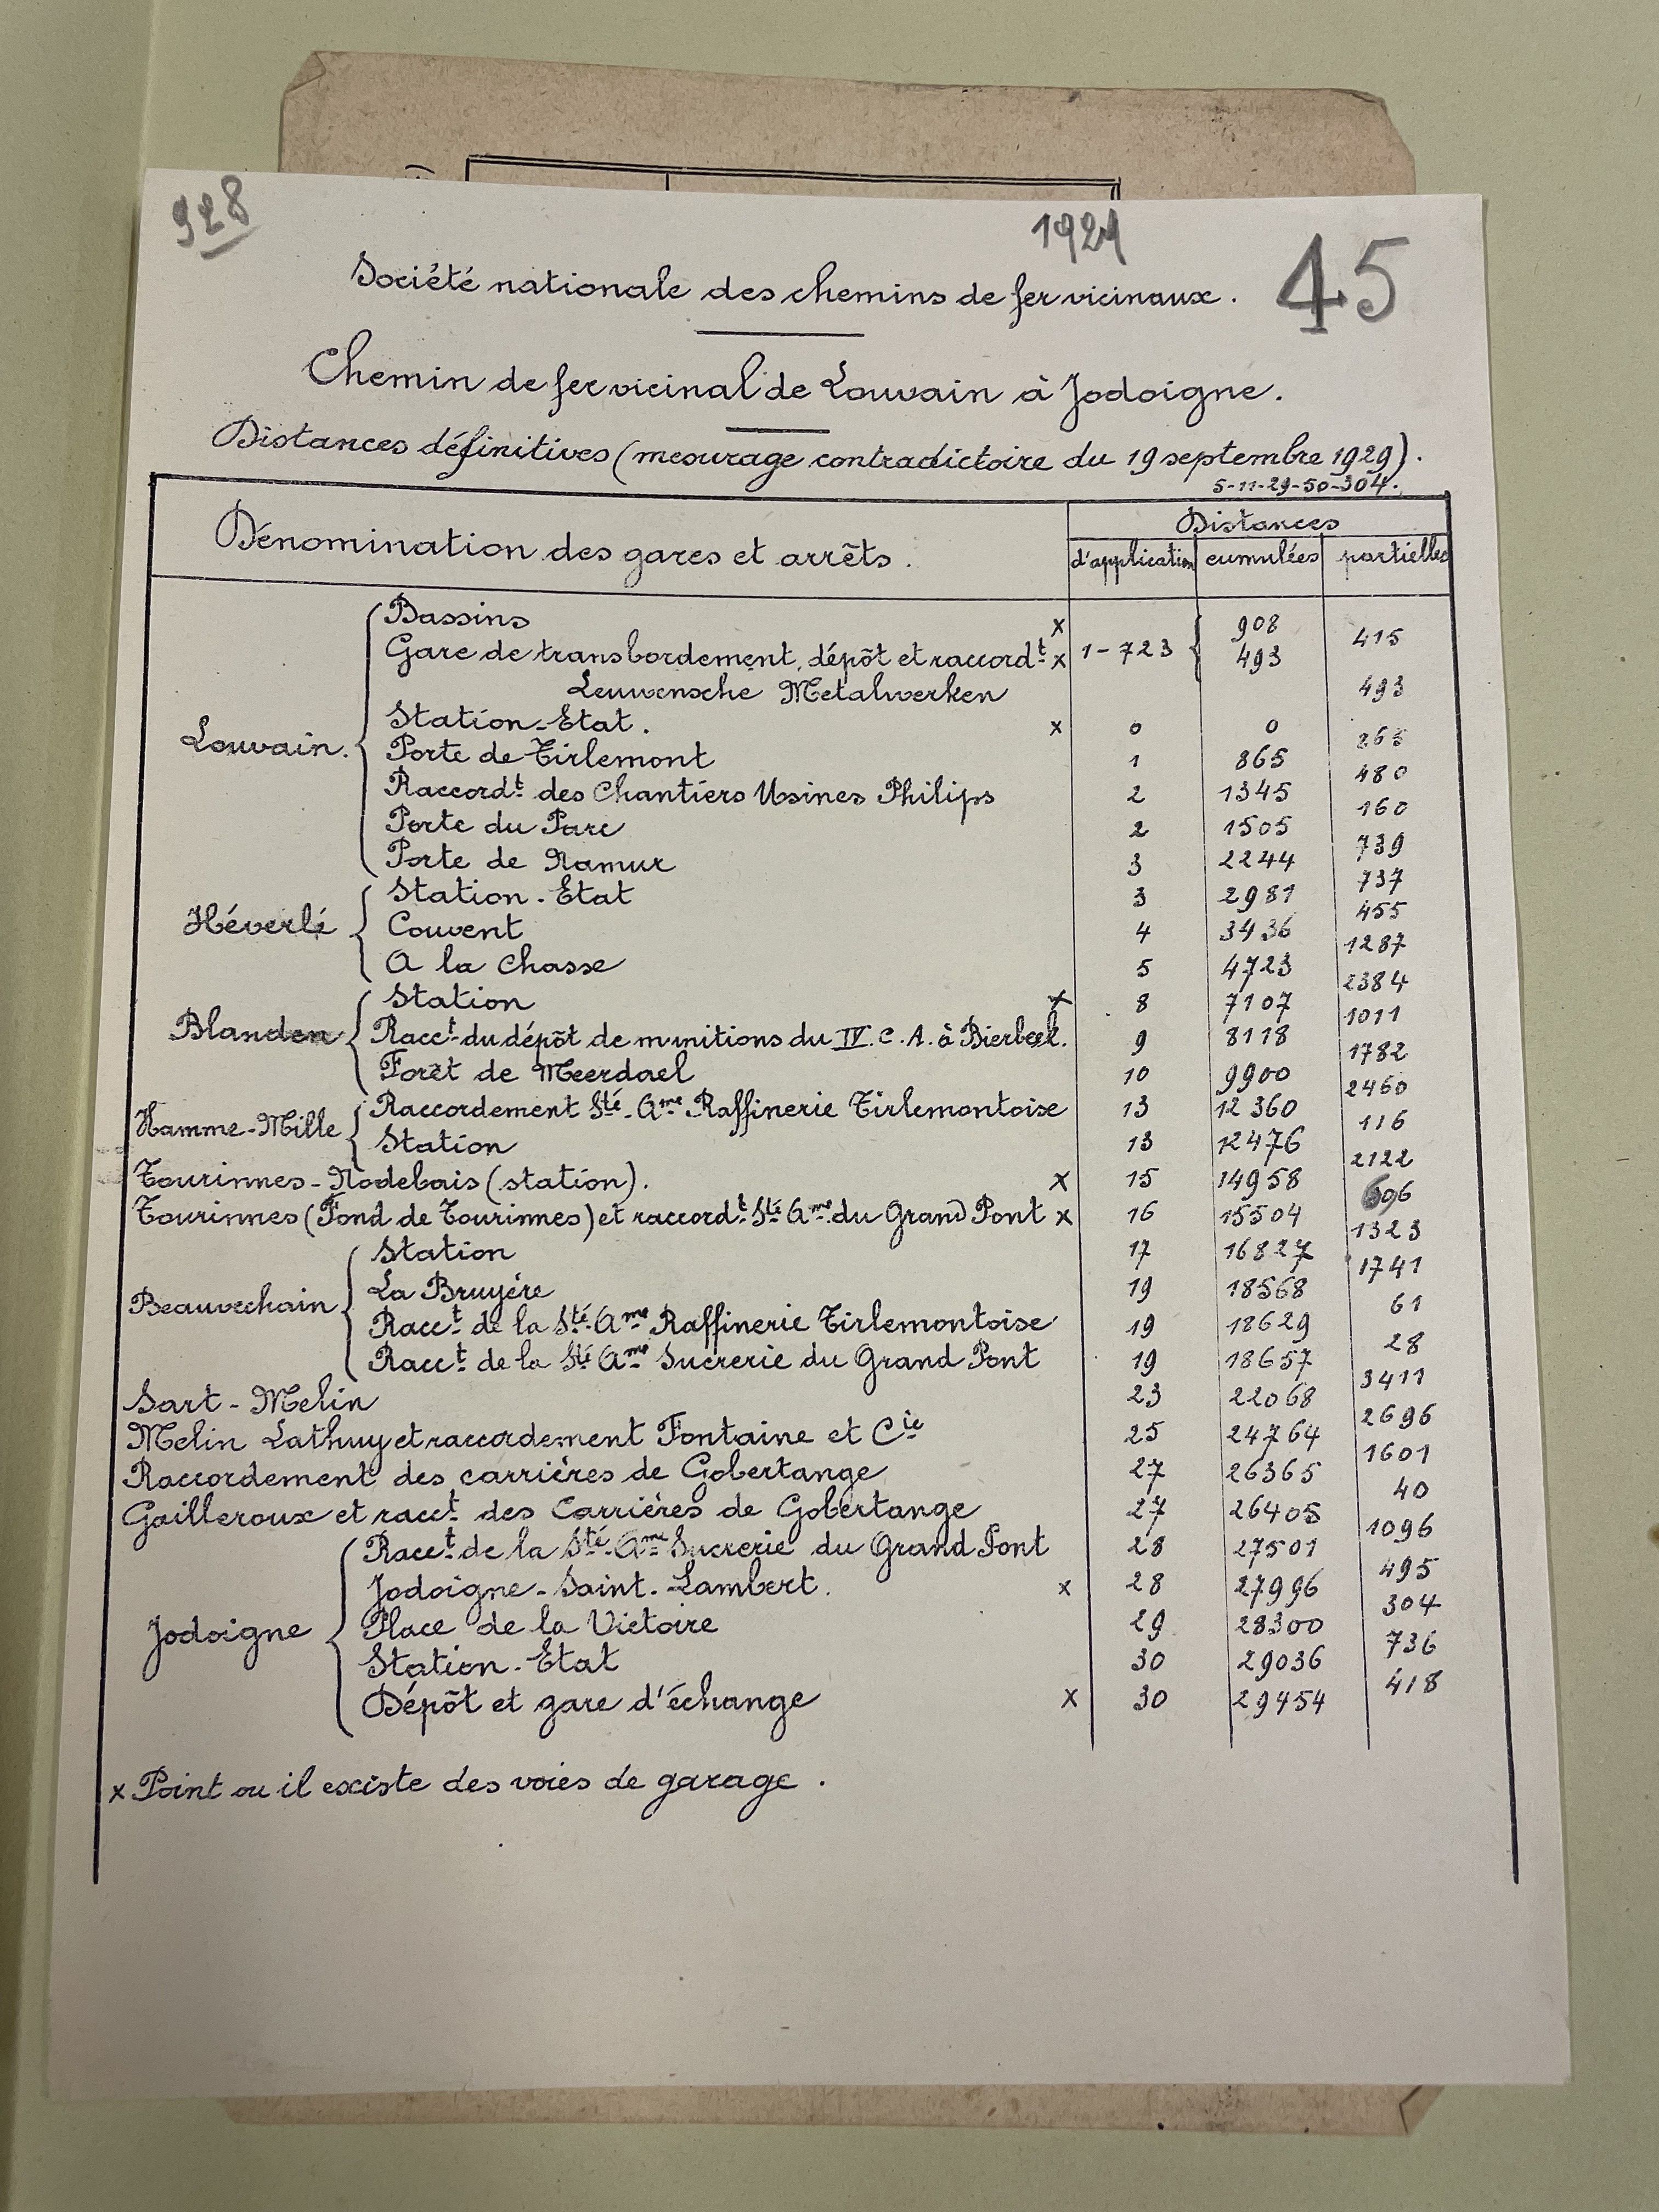 928
1929
45
Société nationale des chemins de fer vicinaux.
Chemin de fer vicinal de Louvain à Jodoigne.
Distances définitives (mesurage contradictoire du 19 septembre 1929).
5-11-29-50-304.
Dénomination des gares et arrêts.
Distances
d'application cumulées partielles
Louvain.
Bassins x 908
415
Gare de transbordement, dépôt et raccordt x 1-723 493
Leuvensche Metalwerken 493
Station-Etat. x 0 0
865
Porte de Tirlemont 1 865
480
Raccordt des Chantiers Usines Philips 2 1345
160
Porte du Parc 2 1505
739
Porte de Namur 3 2244
737
Héverlé
Station-Etat 3 2981
455
Couvent 4 3436
1287
A la chasse 5 4723
2384
Blanden
Station x 8 7107
1011
Racct du dépôt de munitions du IV. C. A. à Bierbeek. 9 8118
1782
Forêt de Meerdael 10 9900
2460
Hamme-Mille
Raccordement Sté Ame Raffinerie Tirlemontoise 13 12360
116
Station 13 12476
2122
Tourinnes-Nodebais (station). x 15 14958
696
Tourinnes (Fond de Tourinnes) et raccordt Sté Ame du Grand Pont x 16 15504
1323
Beauvechain
Station 17 16827
1741
La Bruyére 19 18568
61
Racct de la Sté Ame Raffinerie Tirlemontoise 19 18629
28
Racct de la Sté Ame Sucrerie du Grand Pont 19 18657
3411
Sart-Melin 23 22068
2696
Melin Lathuy et raccordement Fontaine et Cie 25 24764
1601
Raccordement des carrières de Gobertange 27 26365
40
Gailleroux et racct des Carrières de Gobertange 27 26405
1096
Jodoigne
Racct de la Sté Ame Sucrerie du Grand Pont 28 27501
495
Jodoigne-Saint-Lambert. x 28 27996
304
Place de la Victoire 29 28300
736
Station-Etat 30 29036
418
Dépôt et gare d'échange x 30 29454
x Point ou il existe des voies de garage.